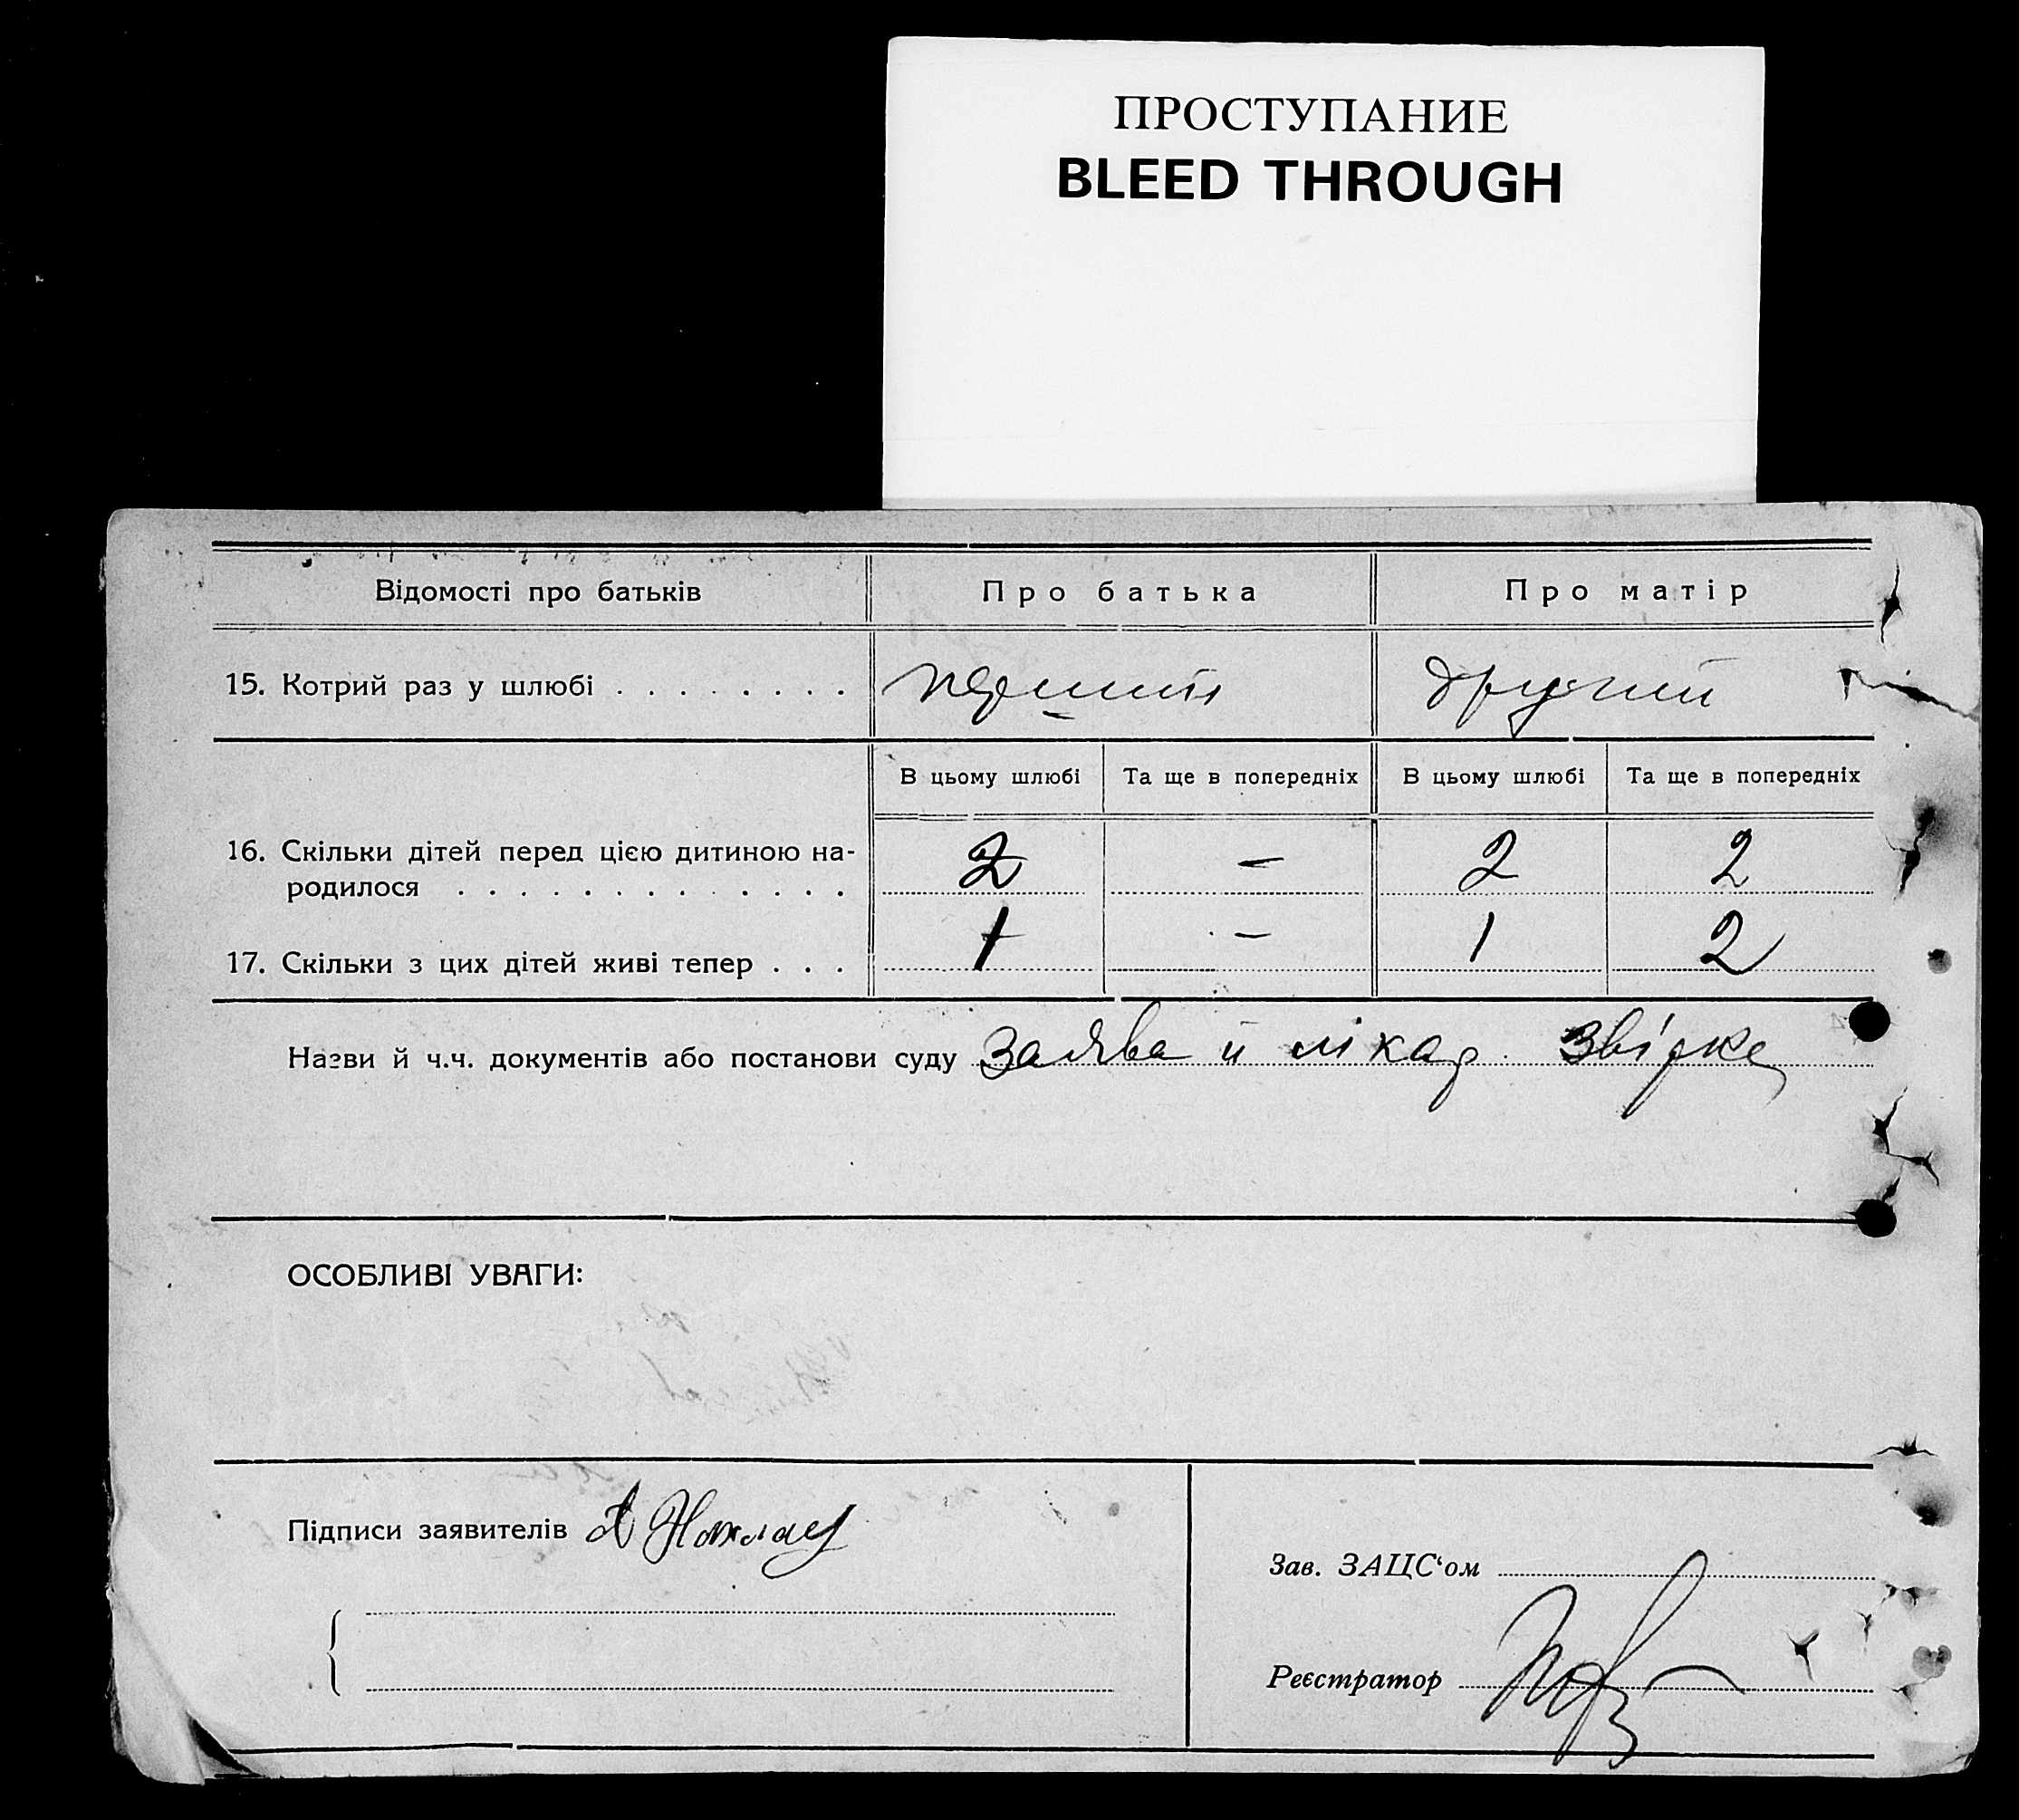 ПРОСТУПАНИЕ
BLEED THROUGH
Відомості про батьків Про батька Про матір
15. Котрий раз у шлюбі . . . . . . . . перший другий
В цьому шлюбі Та ще в попередніх В цьому шлюбі Та ще в попередніх
16. Скільки дітей перед цією дитиною на-
родилося . . . . . . . . . . . . . 2 – 2 2
17. Скільки з цих дітей живі тепер . . . 1 – 1 2
Назви й ч.ч. документів або постанови суду заява й лікар.
ОСОБЛИВІ УВАГИ:
Підписи заявителів
Зав. ЗАЦС‘ом
Реєстратор